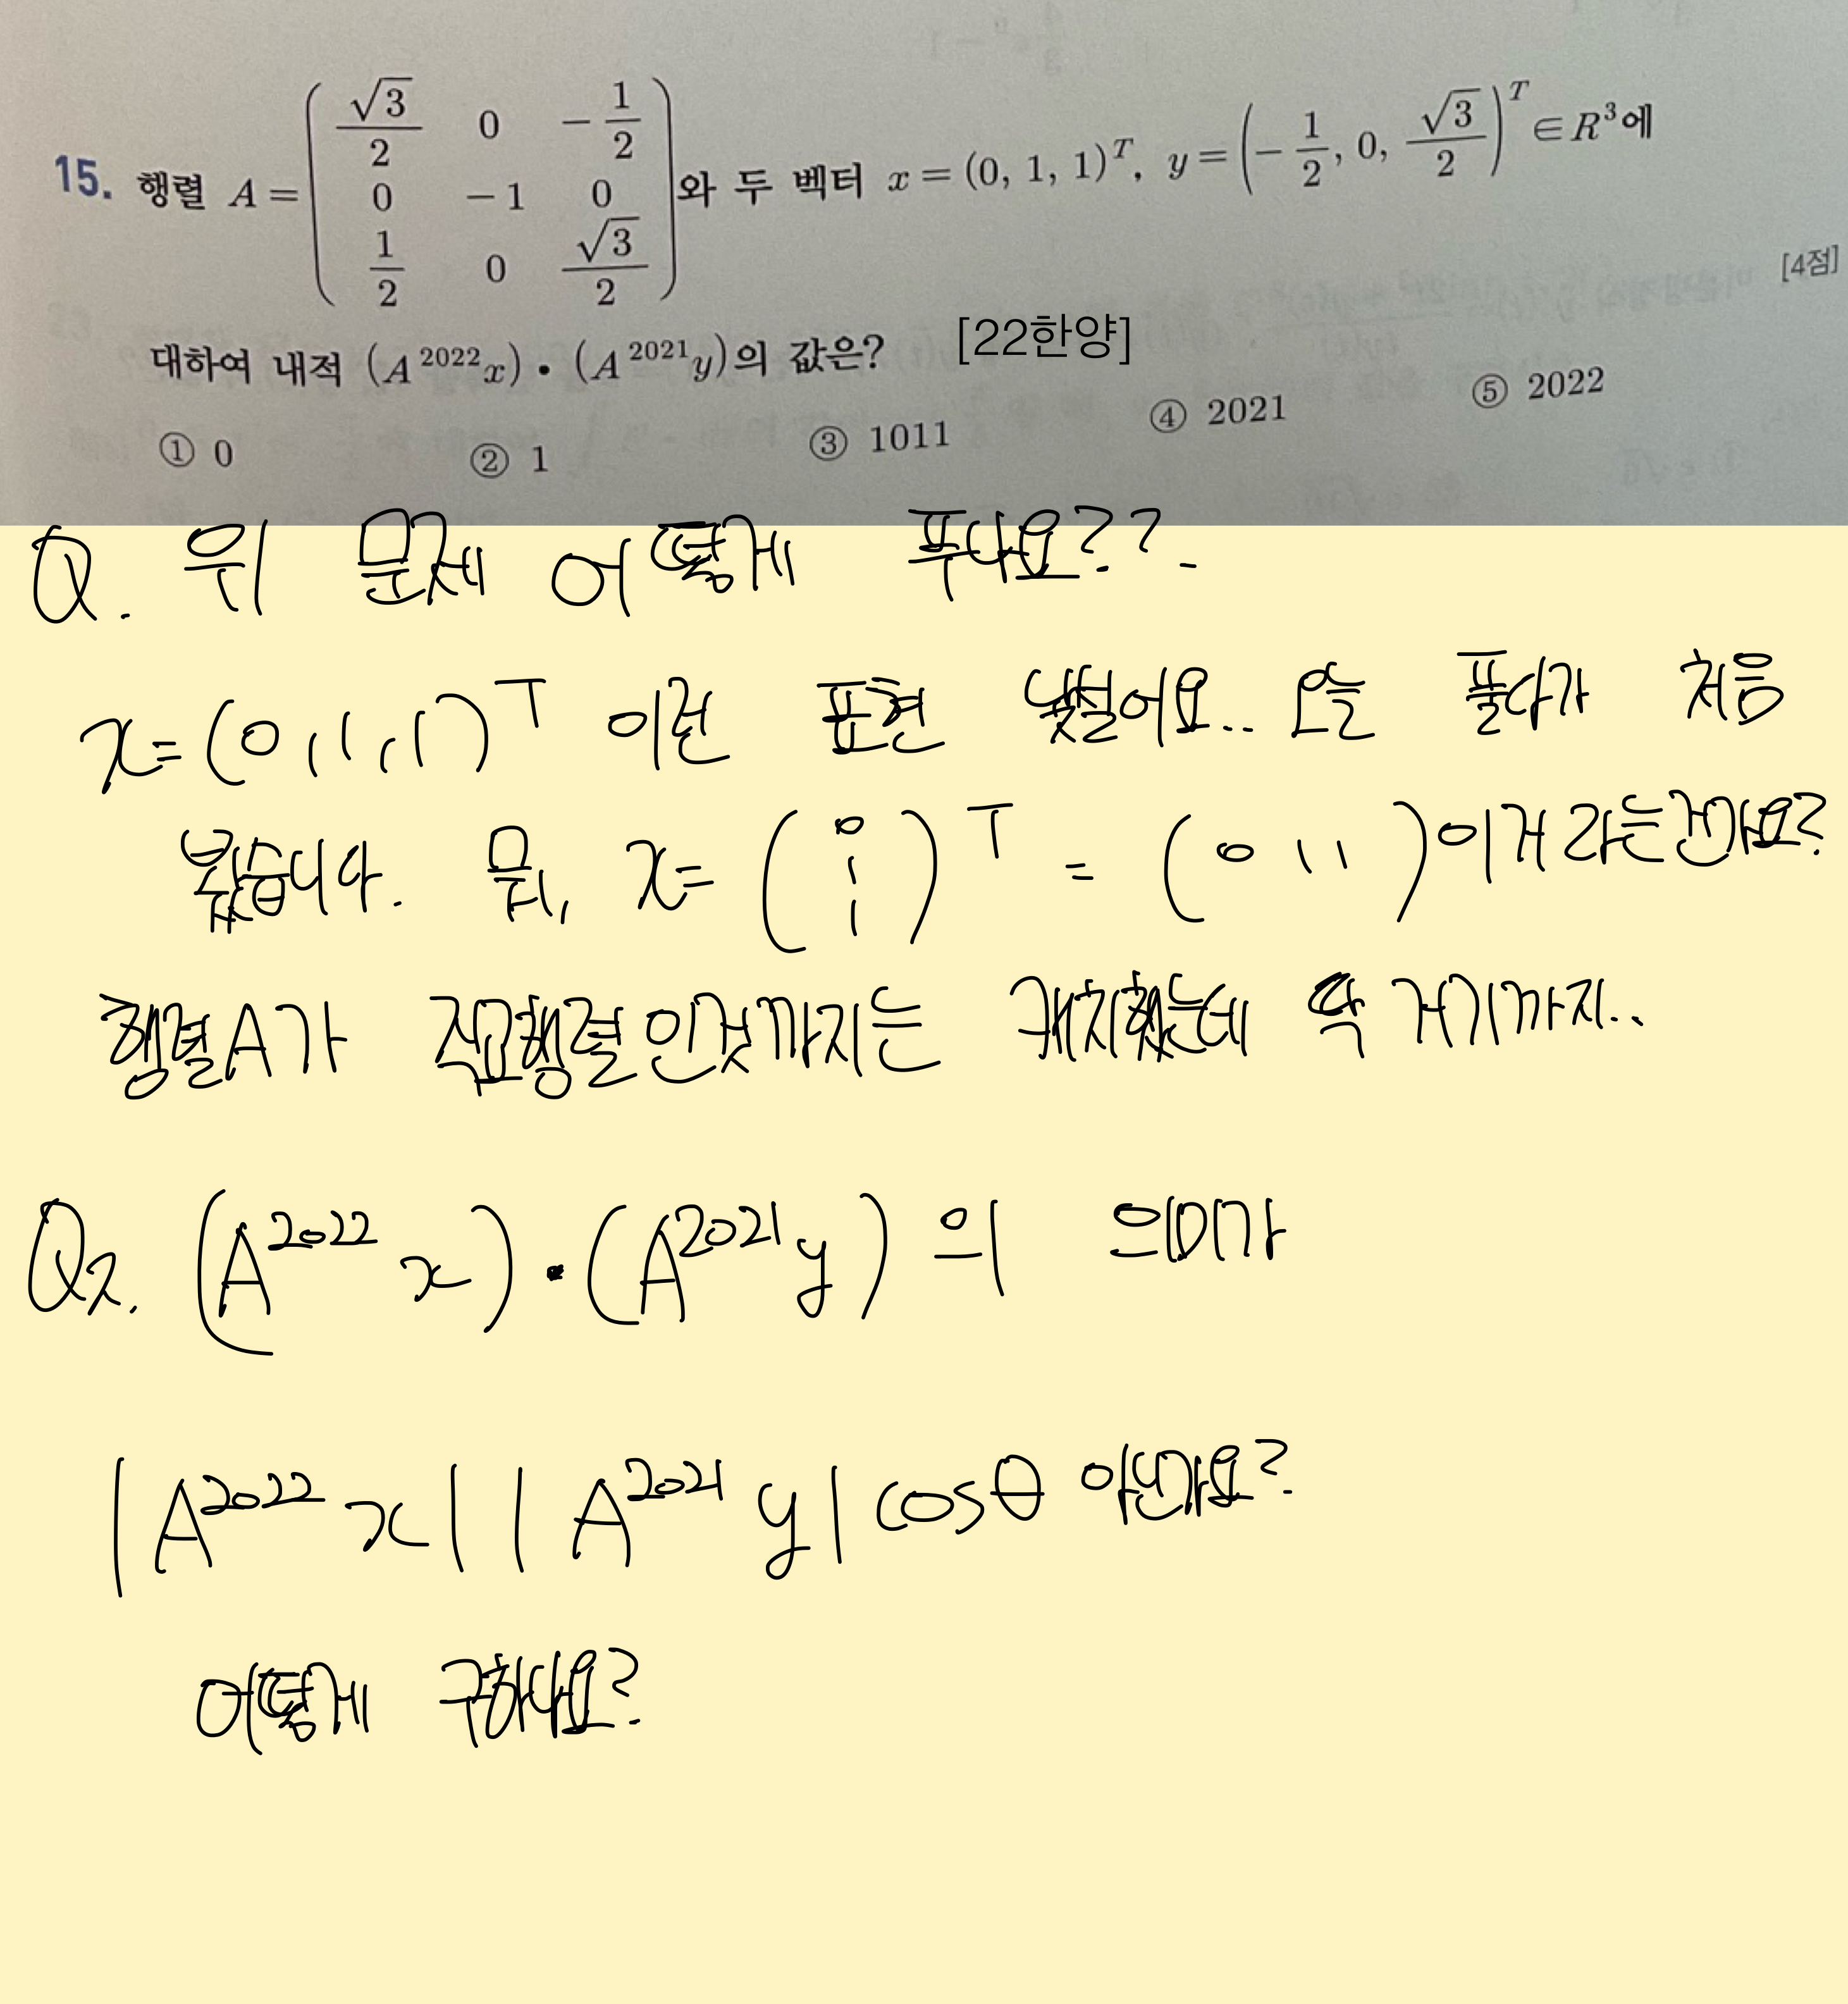 15. 행렬 A = ( √3/2 0 -1/2 ; 0 -1 0 ; 1/2 0 √3/2 )와 두 벡터 x = (0, 1, 1)^T, y = (-1/2, 0, √3/2)^T ∈ R^3에
[4점]
대하여 내적 (A^2022 x)·(A^2021 y)의 값은? [22한양]
① 0 ② 1 ③ 1011 ④ 2021 ⑤ 2022
Q. 위 문제 어떻게 푸나요??.
x=(0,1,1)^T 이런 표현 낯설어요.. 오늘 풀다가 처음
봤습니다. 뭐, x= (0 1 1)^T = (0 1 1)이거라는건가요?
행렬A가 직교행렬인것까지는 캐치했는데 딱 거기까지..
Q2. (A^2022 x)·(A^2021 y)의 의미가
|A^2022 x||A^2021 y|cosθ 아닌가요?
어떻게 구하나요?